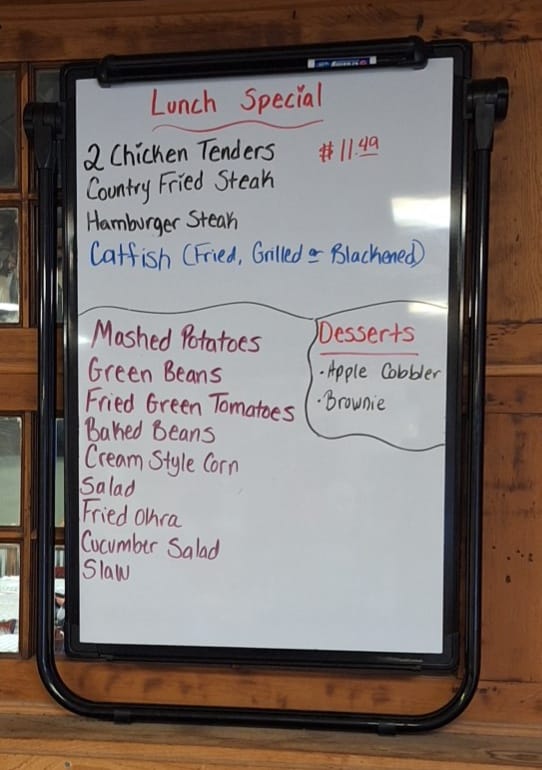 Lunch Special
2 Chicken Tenders $11.49
Country Fried Steak
Hamburger Steak
Catfish (Fried, Grilled or Blackened)
Mashed Potatoes
Green Beans
Fried Green Tomatoes
Baked Beans
Cream Style Corn
Salad
Fried Okra
Cucumber Salad
Slaw
Desserts
·Apple Cobbler
·Brownie